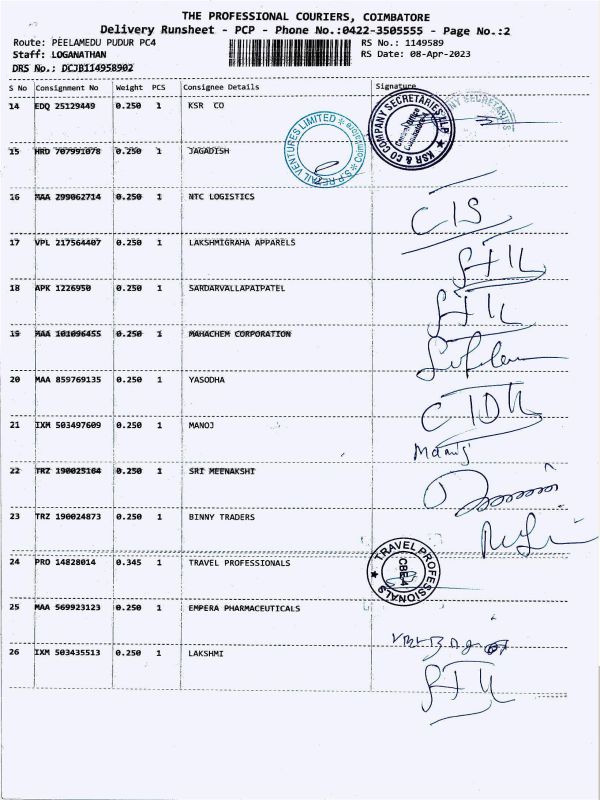 THE PROFESSIONAL COURIERS, COIMBATORE
Delivery Runsheet - PCP - Phone No.:0422-3505555 - Page No.:2
Route: PEELAMEDU PUDUR PC4 RS No.: 1149589
Staff: LOGANATHAN RS Date: 08-Apr-2023
DRS No.: DCJB114958902
S No Consignment No Weight PCS Consignee Details Signature
14 EDQ 25129449 0.250 1 KSR CO
KSR & CO COMPANY SECRETARIES LLP
Coimbatore
S.P.RETAIL VENTURES LIMITED
Coimbatore
15 HRD 707991078 0.250 1 JAGADISH
16 MAA 299062714 0.250 1 NTC LOGISTICS
17 VPL 217564407 0.250 1 LAKSHMIGRAHA APPARELS
18 APK 1226950 0.250 1 SARDARVALLAPAIPATEL
19 MAA 101096455 0.250 1 MAHACHEM CORPORATION
20 MAA 859769135 0.250 1 YASODHA
21 IXM 503497609 0.250 1 MANOJ
22 TRZ 190025164 0.250 1 SRI MEENAKSHI
23 TRZ 190024873 0.250 1 BINNY TRADERS
24 PRO 14828014 0.345 1 TRAVEL PROFESSIONALS
TRAVEL PROFESSIONALS
CBE-4
25 MAA 569923123 0.250 1 EMPERA PHARMACEUTICALS
26 IXM 503435513 0.250 1 LAKSHMI